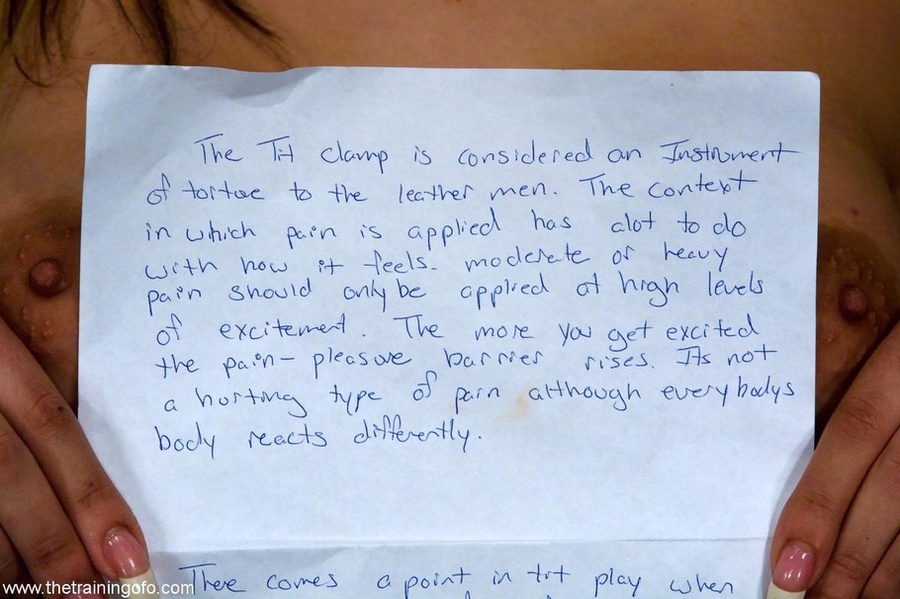 The Tit Clamp is considered an Instrument
of tortue to the leather men. The context
in which pain is applied has alot to do
with how it feels. moderate or heavy
pain should only be applied at high levels
of excitement. The more you get excited
the pain-pleasure barrier rises. Its not
a hurting type of pain although everybodys
body reacts differently.
There comes a point in tit play when
www.thetrainingofo.com